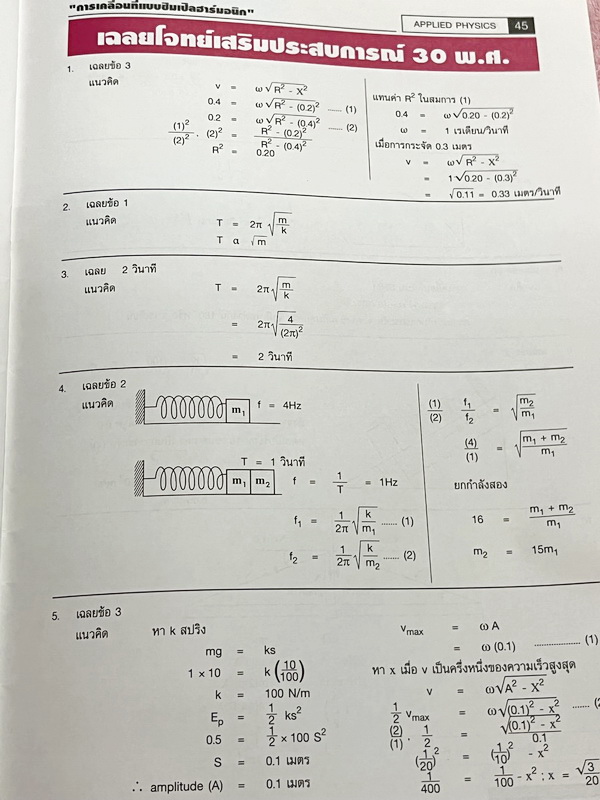 "การเคลื่อนที่แบบซิมเปิลฮาร์มอนิก"
APPLIED PHYSICS 45
เฉลยโจทย์เสริมประสบการณ์ 30 พ.ศ.
1. เฉลยข้อ 3
แนวคิด
v = ω√(R² - X²)
0.4 = ω√(R² - (0.2)²) ...... (1)
0.2 = ω√(R² - (0.4)²) ...... (2)
(1)²/(2)² · (2)² = (R² - (0.2)²)/(R² - (0.4)²)
R² = 0.20
แทนค่า R² ในสมการ (1)
0.4 = ω√(0.20 - (0.2)²)
ω = 1 เรเดียน/วินาที
เมื่อการกระจัด 0.3 เมตร
v = ω√(R² - X²)
= 1√(0.20 - (0.3)²)
= √0.11 = 0.33 เมตร/วินาที
2. เฉลยข้อ 1
แนวคิด
T = 2π √(m/k)
T α √m
3. เฉลย 2 วินาที
แนวคิด
T = 2π√(m/k)
= 2π√(4/(2π)²)
= 2 วินาที
4. เฉลยข้อ 2
แนวคิด
m₁ f = 4Hz
T = 1 วินาที
m₁ m₂ f = 1/T = 1Hz
f₁ = 1/2π √(k/m₁) ...... (1)
f₂ = 1/2π √(k/m₂) ...... (2)
(1)/(2) f₁/f₂ = √(m₂/m₁)
(4)/(1) = √((m₁ + m₂)/m₁)
ยกกำลังสอง
16 = (m₁ + m₂)/m₁
m₂ = 15m₁
5. เฉลยข้อ 3
แนวคิด หา k สปริง
mg = ks
1 × 10 = k (10/100)
k = 100 N/m
Eₚ = 1/2 ks²
0.5 = 1/2 × 100 S²
S = 0.1 เมตร
∴ amplitude (A) = 0.1 เมตร
vmax = ωA
= ω(0.1) .................. (1)
หา x เมื่อ v เป็นครึ่งหนึ่งของความเร็วสูงสุด
v = ω√(A² - X²)
1/2 vmax = ω√((0.1)² - x²) ...... (2
(2)/(1) · 1/2 = √((0.1)² - x²)/0.1
(1/20)² = (1/10)² - x²
1/400 = 1/100 - x² ; x = √3/20